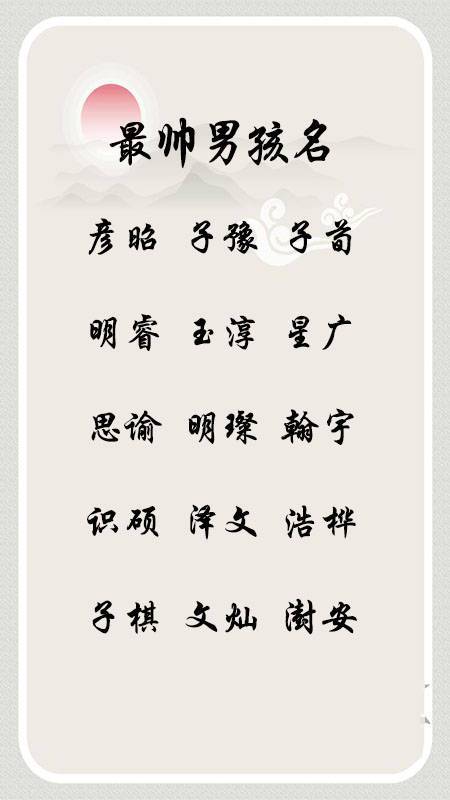 最帅男孩名
彦昭 子豫 子荀
明睿 玉淳 星广
思谕 明璨 翰宇
识硕 泽文 浩桦
子棋 文灿 澍安